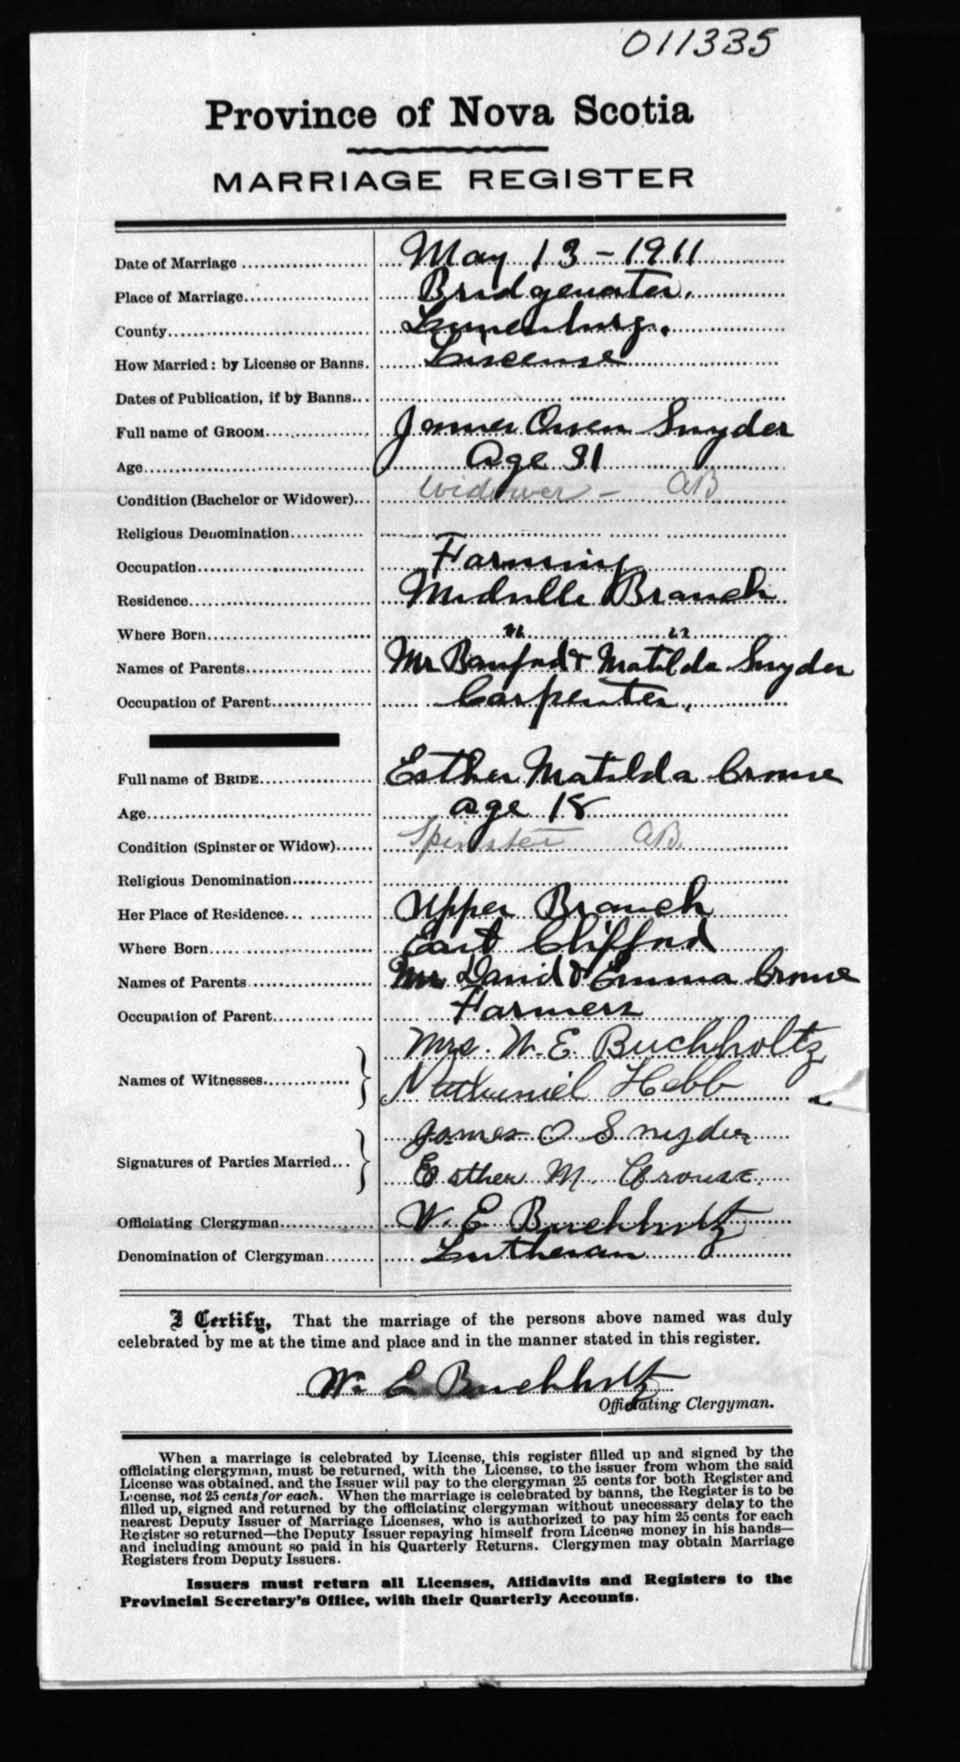 011335
Province of Nova Scotia
MARRIAGE REGISTER
Date of Marriage May 13 - 1911
Place of Marriage Bridgewater.
County Lunenburg.
How Married: by License or Banns. Liscense
Dates of Publication, if by Banns
Full name of GROOM James Owen Snyder
Age Age 31
Condition (Bachelor or Widower) Widower - AB
Religious Denomination
Occupation Farming
Residence Midville Branch
Where Born " "
Names of Parents Mr Banford & Matilda Snyder
Occupation of Parent Carpenter.
Full name of BRIDE Esther Matilda Crouse
Age age 18
Condition (Spinster or Widow) Spinster AB
Religious Denomination
Her Place of Residence Upper Branch
Where Born East Clifford
Names of Parents Mr David & Emma Crouse
Occupation of Parent Farmers
Names of Witnesses Mrs. W. E. Buchholtz
Nathaniel Hebb
Signatures of Parties Married James O Snyder
Esther M. Crouse.
Officiating Clergyman W. E Buchholtz
Denomination of Clergyman Lutheran
I Certify, That the marriage of the persons above named was duly
celebrated by me at the time and place and in the manner stated in this register.
W. E Buchholtz
Officiating Clergyman.
When a marriage is celebrated by License, this register filled up and signed by the
officiating clergyman, must be returned, with the License, to the issuer from whom the said
License was obtained, and the Issuer will pay to the clergyman 25 cents for both Register and
License, not 25 cents for each. When the marriage is celebrated by banns, the Register is to be
filled up, signed and returned by the officiating clergyman without unecessary delay to the
nearest Deputy Issuer of Marriage Licenses, who is authorized to pay him 25 cents for each
Register so returned—the Deputy Issuer repaying himself from License money in his hands—
and including amount so paid in his Quarterly Returns. Clergymen may obtain Marriage
Registers from Deputy Issuers.
Issuers must return all Licenses, Affidavits and Registers to the
Provincial Secretary's Office, with their Quarterly Accounts.